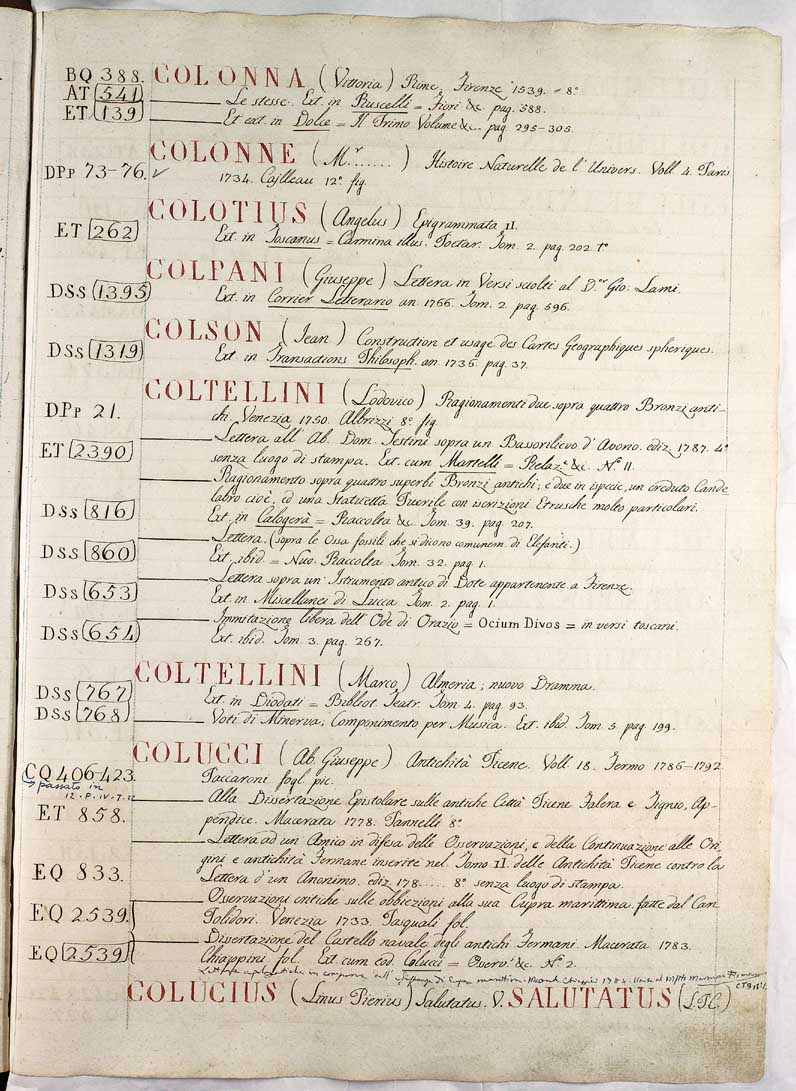 BQ 388. COLONNA (Vittoria) Rime, Firenze 1539. = 8°
AT 541 Le stesse. Ext. in Ruscelli = Fiori &c. pag. 588.
ET 139 Et ext. in Dolce = Il Primo Volume &c. pag. 295-305.
COLONNE (Mr.......) Histoire Naturelle de l'Univers. Voll. 4. Paris
DPp 73-76. 1734. Cailleau 12° fig.
COLOTIUS (Angelus) Epigrammata II.
ET 262 Ext. in Toscanus = Carmina illus. Poetar. Tom. 2. pag. 202. t°
COLPANI (Giuseppe) Lettera in Versi sciolti al D.or Gio: Lami.
DSs 1395 Ext. in Corrier Letterario an. 1766. Tom. 2. pag. 596.
COLSON (Jean) Construction et usage des Cartes Geographiques spheriques.
DSs 1319 Ext. in Transactions Philosoph. an. 1736. pag. 37.
COLTELLINI (Lodovico) Ragionamenti due sopra quattro Bronzi anti-
DPp 21. chi. Venezia 1750. Albrizzi 8° fig.
Lettera all'Ab. Dom. Sestini sopra un Bassorilievo d'Avorio. ediz. 1787. 4°
ET 2390 senza luogo di stampa. Ext. cum Martelli = Relaz.e &c. N.° 11.
Ragionamento sopra quattro superbi Bronzi antichi, e due in ispecie, un creduto Cande
labro cioè, ed una Statuetta Puerile con iscrizioni Etrusche molto particolari.
DSs 816 Ext. in Calogerà = Raccolta &c. Tom. 39. pag. 207.
Lettera. (sopra le Ossa fossili che si dicono comunem. di Elefanti.)
DSs 860 Ext. ibid. = Nuo. Raccolta Tom. 32. pag. 1.
Lettera sopra un'Istrumento antico di Dote appartenente a Firenze.
DSs 653 Ext. in Miscellanei di Lucca Tom. 2. pag. 1.
Immitazione libera dell'Ode di Orazio = Ocium Divos = in versi toscani.
DSs 654 Ext. ibid. Tom. 3. pag. 267.
COLTELLINI (Marco) Almeria, nuovo Dramma.
DSs 767 Ext. in Diodati = Bibliot. Teatr. Tom. 4. pag. 93.
DSs 768 Voti di Minerva, Componimento per Musica. Ext. ibid. Tom. 5. pag. 199.
COLUCCI (Ab. Giuseppe) Antichità Picene. Voll. 18. Fermo 1786-1792.
CQ 406-423. Paccaroni fogl. pic.
passato in
12.P.IV.7.12
Alla Dissertazione Epistolare sulle antiche Città Picene Falera e Tignio, Ap-
ET 858. pendice. Macerata 1778. Pannelli 8°
Lettera ad un Amico in difesa delle Osservazioni, e della Continuazione alle Ori
gini e antichità Fermane inserite nel Tomo II. delle Antichità Picene contro la
EQ 833. Lettera d'un Anonimo. ediz. 178..... 8° senza luogo di stampa.
Osservazioni critiche sulle obbiezioni alla sua Cupra marittima fatte dal Can.
EQ 2539. Polidori. Venezia 1733. Pasquali fol.
Dissertazione del Castello navale degli antichi Fermani. Macerata 1783.
EQ 2539 Chiappini fol. Ext. cum eod. Colucci = Osserv.i &c. N.° 2.
COLUCIUS (Linus Pierius) Salutatus. V. SALUTATUS (L.P.C.)